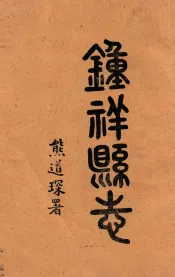 鍾祥縣志
熊道琛署